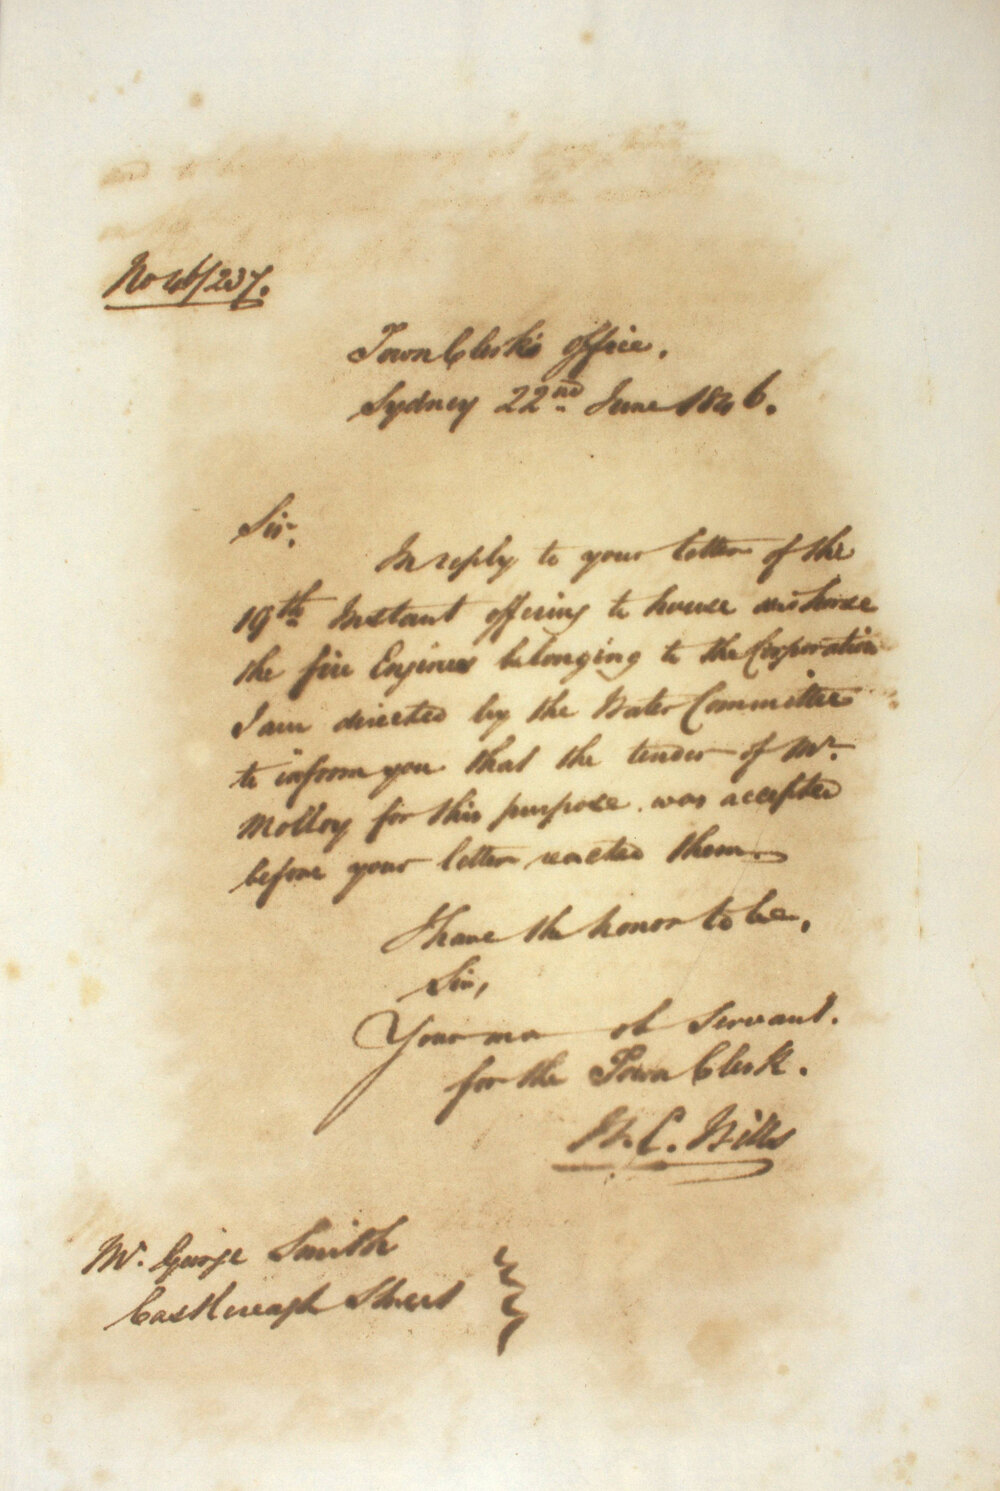 No 46/237.
Town Clerk's Office.
Sydney 22nd June 1846.
Sir,
In reply to your letter of the
19th Instant offering to house and horse
the fire Engines belonging to the Corporation
I am directed by the Water Committee
to inform you that the tender of Mr.
Molloy for this purpose was accepted
before your letter reached them.
I have the honor to be,
Sir,
Your mo ob Servant.
for the Town Clerk.
W. C. Wills
Mr. George Smith
Castlereagh Street